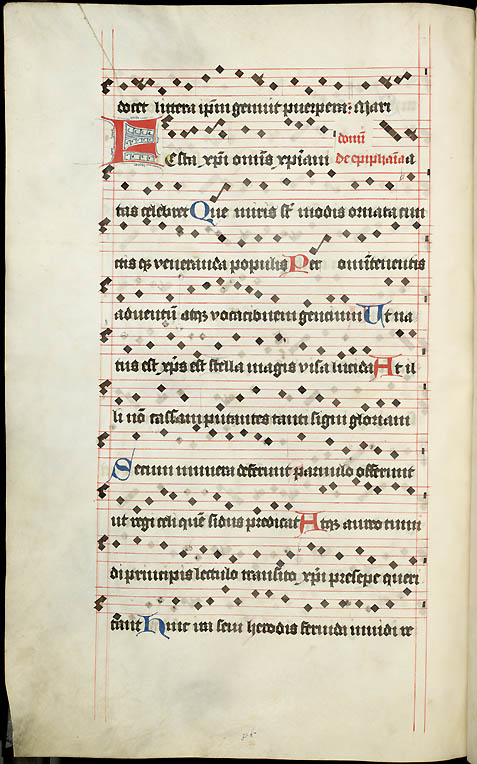 docet littera ipm genuit puerpera: Mari
domi
Esta xpi omis xpiani de epiphaia a
tas celebret Que miris st modis ornata cun
ctis qz veneranda populis Per omitenentis
aduentu atqz vocacionem gencium Ut na
tus est xps est stella magis visa lucida At il
li no cassam putantes tanti signi gloriam
Secum munera deferunt paruulo offerunt
ut regi celi que sidus predicat Atqz aureo tumi
di principis lectulo transito xpi presepe queri
tant Hinc ira seui herodis feruida inuidi re